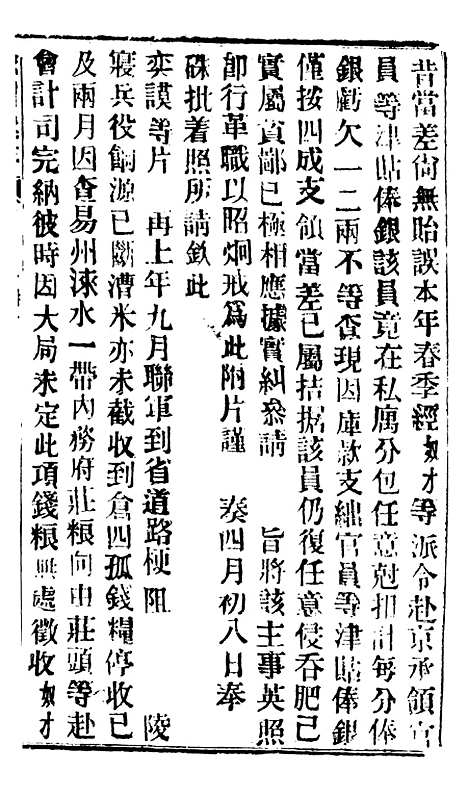 昔當差尙無貽誤本年春季經奴才等派令赴京承領官
員等津貼俸銀該員竟在私寓分包任意尅扣計每分俸
銀虧欠一二兩不等查現因庫款支絀官員等津貼俸銀
僅按四成支領當差已屬拮据該員仍復任意侵吞肥己
實屬貪鄙已極相應據實糾參請 旨將該主事英照
卽行革職以昭炯戒爲此附片謹 奏四月初八日奉
硃批着照所請欽此
奕謨等片 再上年九月聯軍到省道路梗阻 陵
寢兵役餉源已斷漕米亦未截收到倉四孤錢糧停收已
及兩月因查易州淶水一帶內務府莊粮向由莊頭等赴
會計司完納彼時因大局未定此項錢粮無處徵收奴才